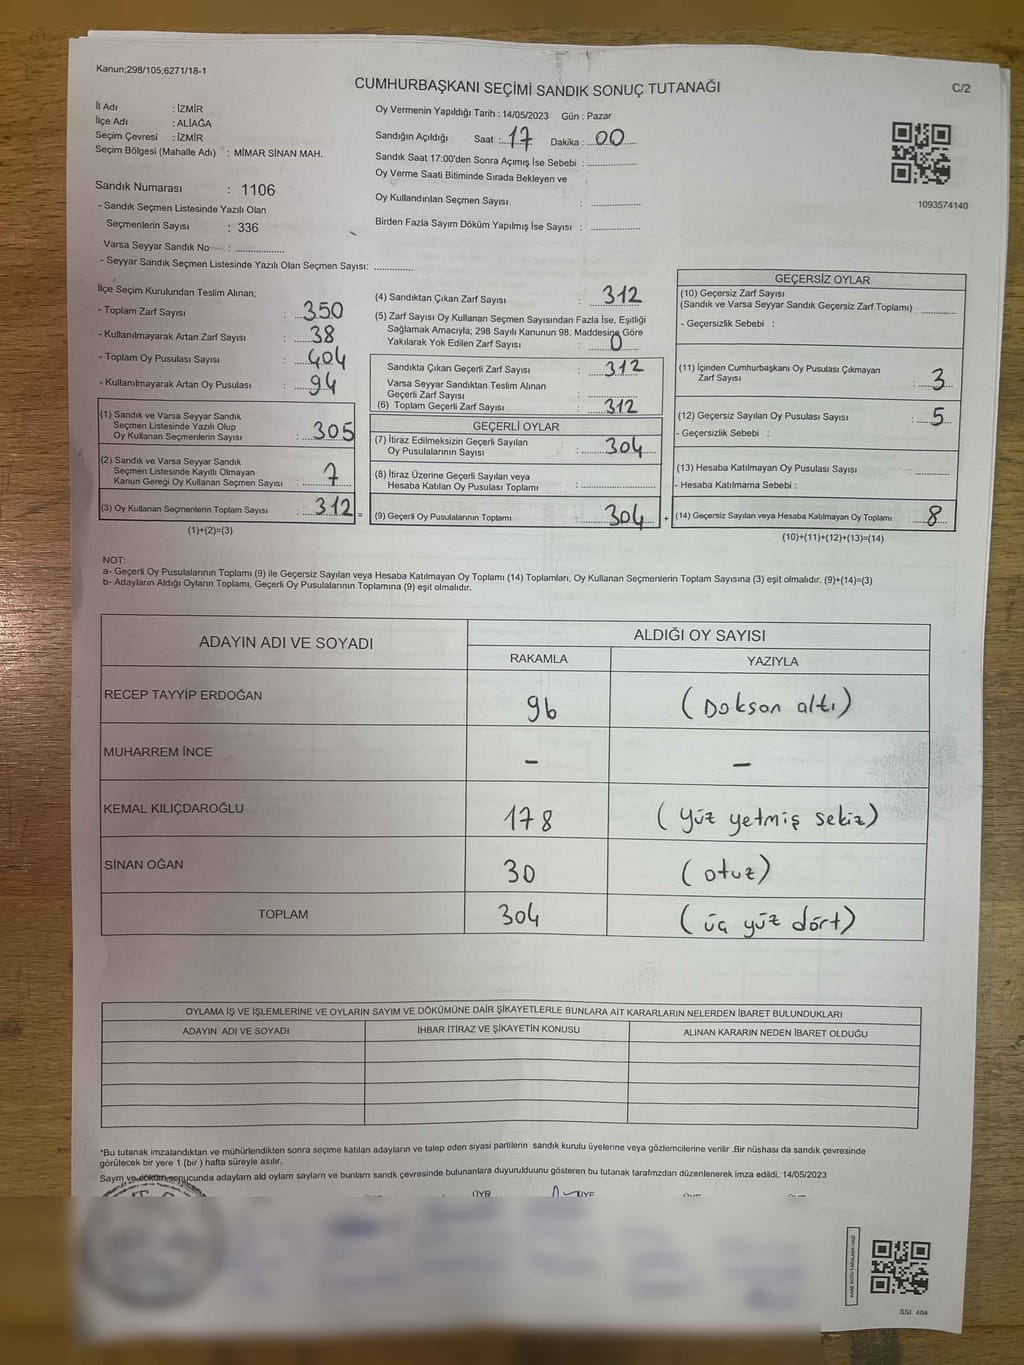 Kanun;298/105;6271/18-1
CUMHURBAŞKANI SEÇİMİ SANDIK SONUÇ TUTANAĞI
C/2
İl Adı : İZMİR
İlçe Adı : ALİAĞA
Seçim Çevresi : İZMİR
Seçim Bölgesi (Mahalle Adı) : MİMAR SİNAN MAH.
Sandık Numarası : 1106
- Sandık Seçmen Listesinde Yazılı Olan
Seçmenlerin Sayısı : 336
Varsa Seyyar Sandık No : ..................
- Seyyar Sandık Seçmen Listesinde Yazılı Olan Seçmen Sayısı: ..............
Oy Vermenin Yapıldığı Tarih : 14/05/2023 Gün : Pazar
Sandığın Açıldığı Saat : 17 Dakika : 00
Sandık Saat 17:00'den Sonra Açımış İse Sebebi : ..................
Oy Verme Saati Bitiminde Sırada Bekleyen ve
Oy Kullandırılan Seçmen Sayısı : ..................
Birden Fazla Sayım Döküm Yapılmış İse Sayısı : ..................
1093574140
İlçe Seçim Kurulundan Teslim Alınan;
- Toplam Zarf Sayısı : 350
- Kullanılmayarak Artan Zarf Sayısı : 38
- Toplam Oy Pusulası Sayısı : 404
- Kullanılmayarak Artan Oy Pusulası : 94
(1) Sandık ve Varsa Seyyar Sandık
Seçmen Listesinde Yazılı Olup
Oy Kullanan Seçmenlerin Sayısı : 305
(2) Sandık ve Varsa Seyyar Sandık
Seçmen Listesinde Kayıtlı Olmayan
Kanun Gereği Oy Kullanan Seçmen Sayısı : 7
(3) Oy Kullanan Seçmenlerin Toplam Sayısı : 312 =
(1)+(2)=(3)
(4) Sandıktan Çıkan Zarf Sayısı : 312
(5) Zarf Sayısı Oy Kullanan Seçmen Sayısından Fazla İse, Eşitliği
Sağlamak Amacıyla; 298 Sayılı Kanunun 98. Maddesine Göre
Yakılarak Yok Edilen Zarf Sayısı : 0
Sandıkta Çıkan Geçerli Zarf Sayısı : 312
Varsa Seyyar Sandıktan Teslim Alınan
Geçerli Zarf Sayısı : ..................
(6) Toplam Geçerli Zarf Sayısı : 312
GEÇERLİ OYLAR
(7) İtiraz Edilmeksizin Geçerli Sayılan
Oy Pusulalarının Sayısı : 304
(8) İtiraz Üzerine Geçerli Sayılan veya
Hesaba Katılan Oy Pusulası Toplamı : ..................
(9) Geçerli Oy Pusulalarının Toplamı : 304 +
GEÇERSİZ OYLAR
(10) Geçersiz Zarf Sayısı
(Sandık ve Varsa Seyyar Sandık Geçersiz Zarf Toplamı) : ............
- Geçersizlik Sebebi :
(11) İçinden Cumhurbaşkanı Oy Pusulası Çıkmayan
Zarf Sayısı : 3
(12) Geçersiz Sayılan Oy Pusulası Sayısı : 5
- Geçersizlik Sebebi :
(13) Hesaba Katılmayan Oy Pusulası Sayısı : ............
- Hesaba Katılmama Sebebi :
(14) Geçersiz Sayılan veya Hesaba Katılmayan Oy Toplamı : 8
(10)+(11)+(12)+(13)=(14)
NOT:
a- Geçerli Oy Pusulalarının Toplamı (9) ile Geçersiz Sayılan veya Hesaba Katılmayan Oy Toplamı (14) Toplamları, Oy Kullanan Seçmenlerin Toplam Sayısına (3) eşit olmalıdır. (9)+(14)=(3)
b- Adayların Aldığı Oyların Toplamı, Geçerli Oy Pusulalarının Toplamına (9) eşit olmalıdır.
ADAYIN ADI VE SOYADI ALDIĞI OY SAYISI
RAKAMLA YAZIYLA
RECEP TAYYİP ERDOĞAN 96 (Doksan altı)
MUHARREM İNCE - -
KEMAL KILIÇDAROĞLU 178 (yüz yetmiş sekiz)
SİNAN OĞAN 30 (otuz)
TOPLAM 304 (üç yüz dört)
OYLAMA İŞ VE İŞLEMLERİNE VE OYLARIN SAYIM VE DÖKÜMÜNE DAİR ŞİKAYETLERLE BUNLARA AİT KARARLARIN NELERDEN İBARET BULUNDUKLARI
ADAYIN ADI VE SOYADI İHBAR İTİRAZ VE ŞİKAYETİN KONUSU ALINAN KARARIN NEDEN İBARET OLDUĞU
*Bu tutanak imzalandıktan ve mühürlendikten sonra seçime katılan adayların ve talep eden siyasi partilerin sandık kurulu üyelerine veya gözlemcilerine verilir .Bir nüshası da sandık çevresinde
görülecek bir yere 1 (bir ) hafta süreyle asılır.
Sayım ve döküm sonucunda adayların ald oyların sayların ve bunların sandık çevresinde bulunanlara duyurulduunu gösteren bu tutanak tarafmzdan düzenlenerek imza edildi. 14/05/2023
ÜYE ÜYE
SSI 404